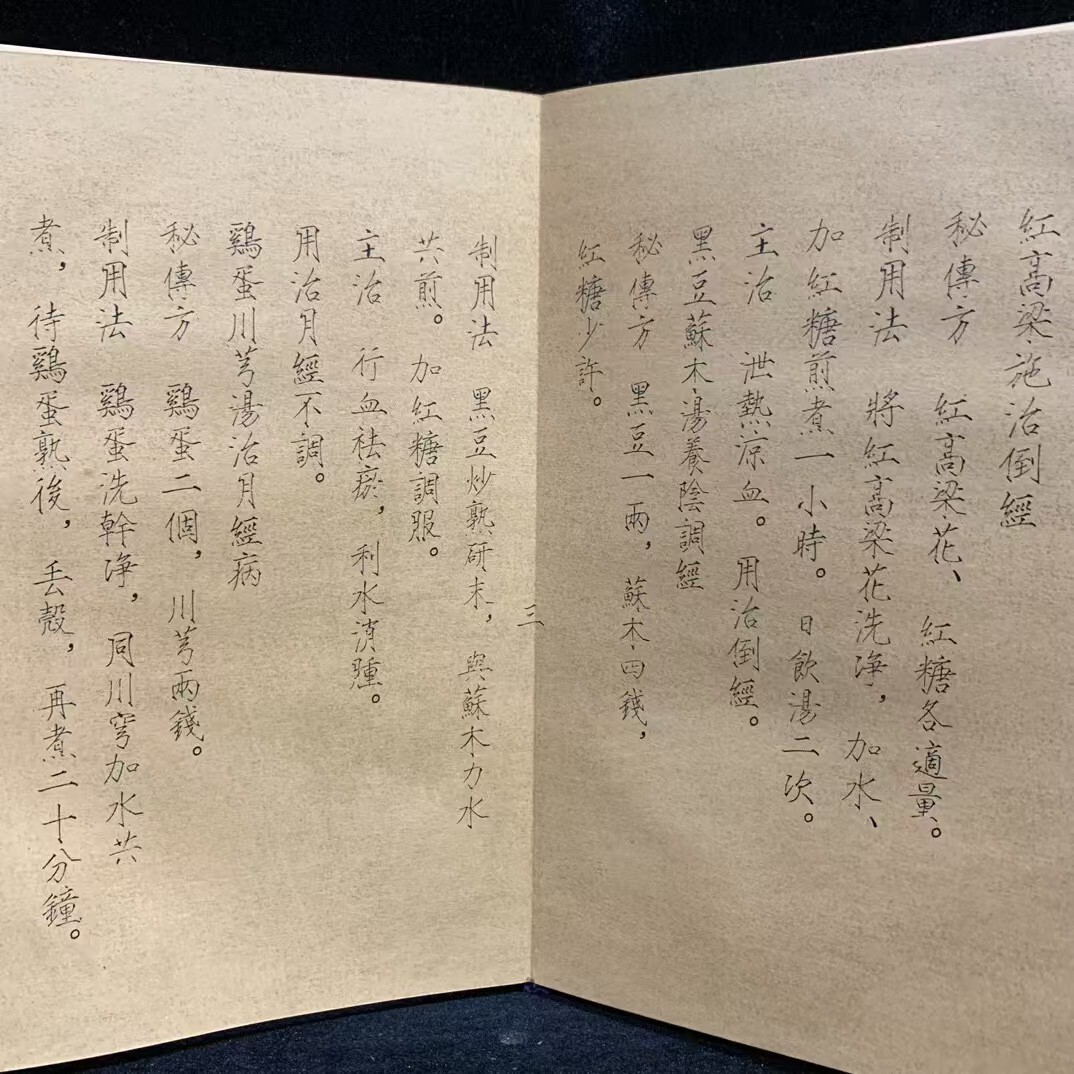 紅高梁施治倒經
秘傳方　紅高梁花、紅糖各適量。
制用法　將紅高梁花洗净，加水、
加紅糖煎煮一小時。日飲湯二次。
主治　泄熱凉血。用治倒經。
黑豆蘇木湯養陰調經
秘傳方　黑豆一兩，蘇木四錢，
紅糖少許。
三
制用法　黑豆炒熟研末，與蘇木力水
共煎。加紅糖調服。
主治　行血祛瘀，利水消腫。
用治月經不調。
鷄蛋川芎湯治月經病
秘傳方　鷄蛋二個，川芎兩錢。
制用法　鷄蛋洗幹净，同川穹加水共
煮，待鷄蛋熟後，丢殼，再煮二十分鐘。